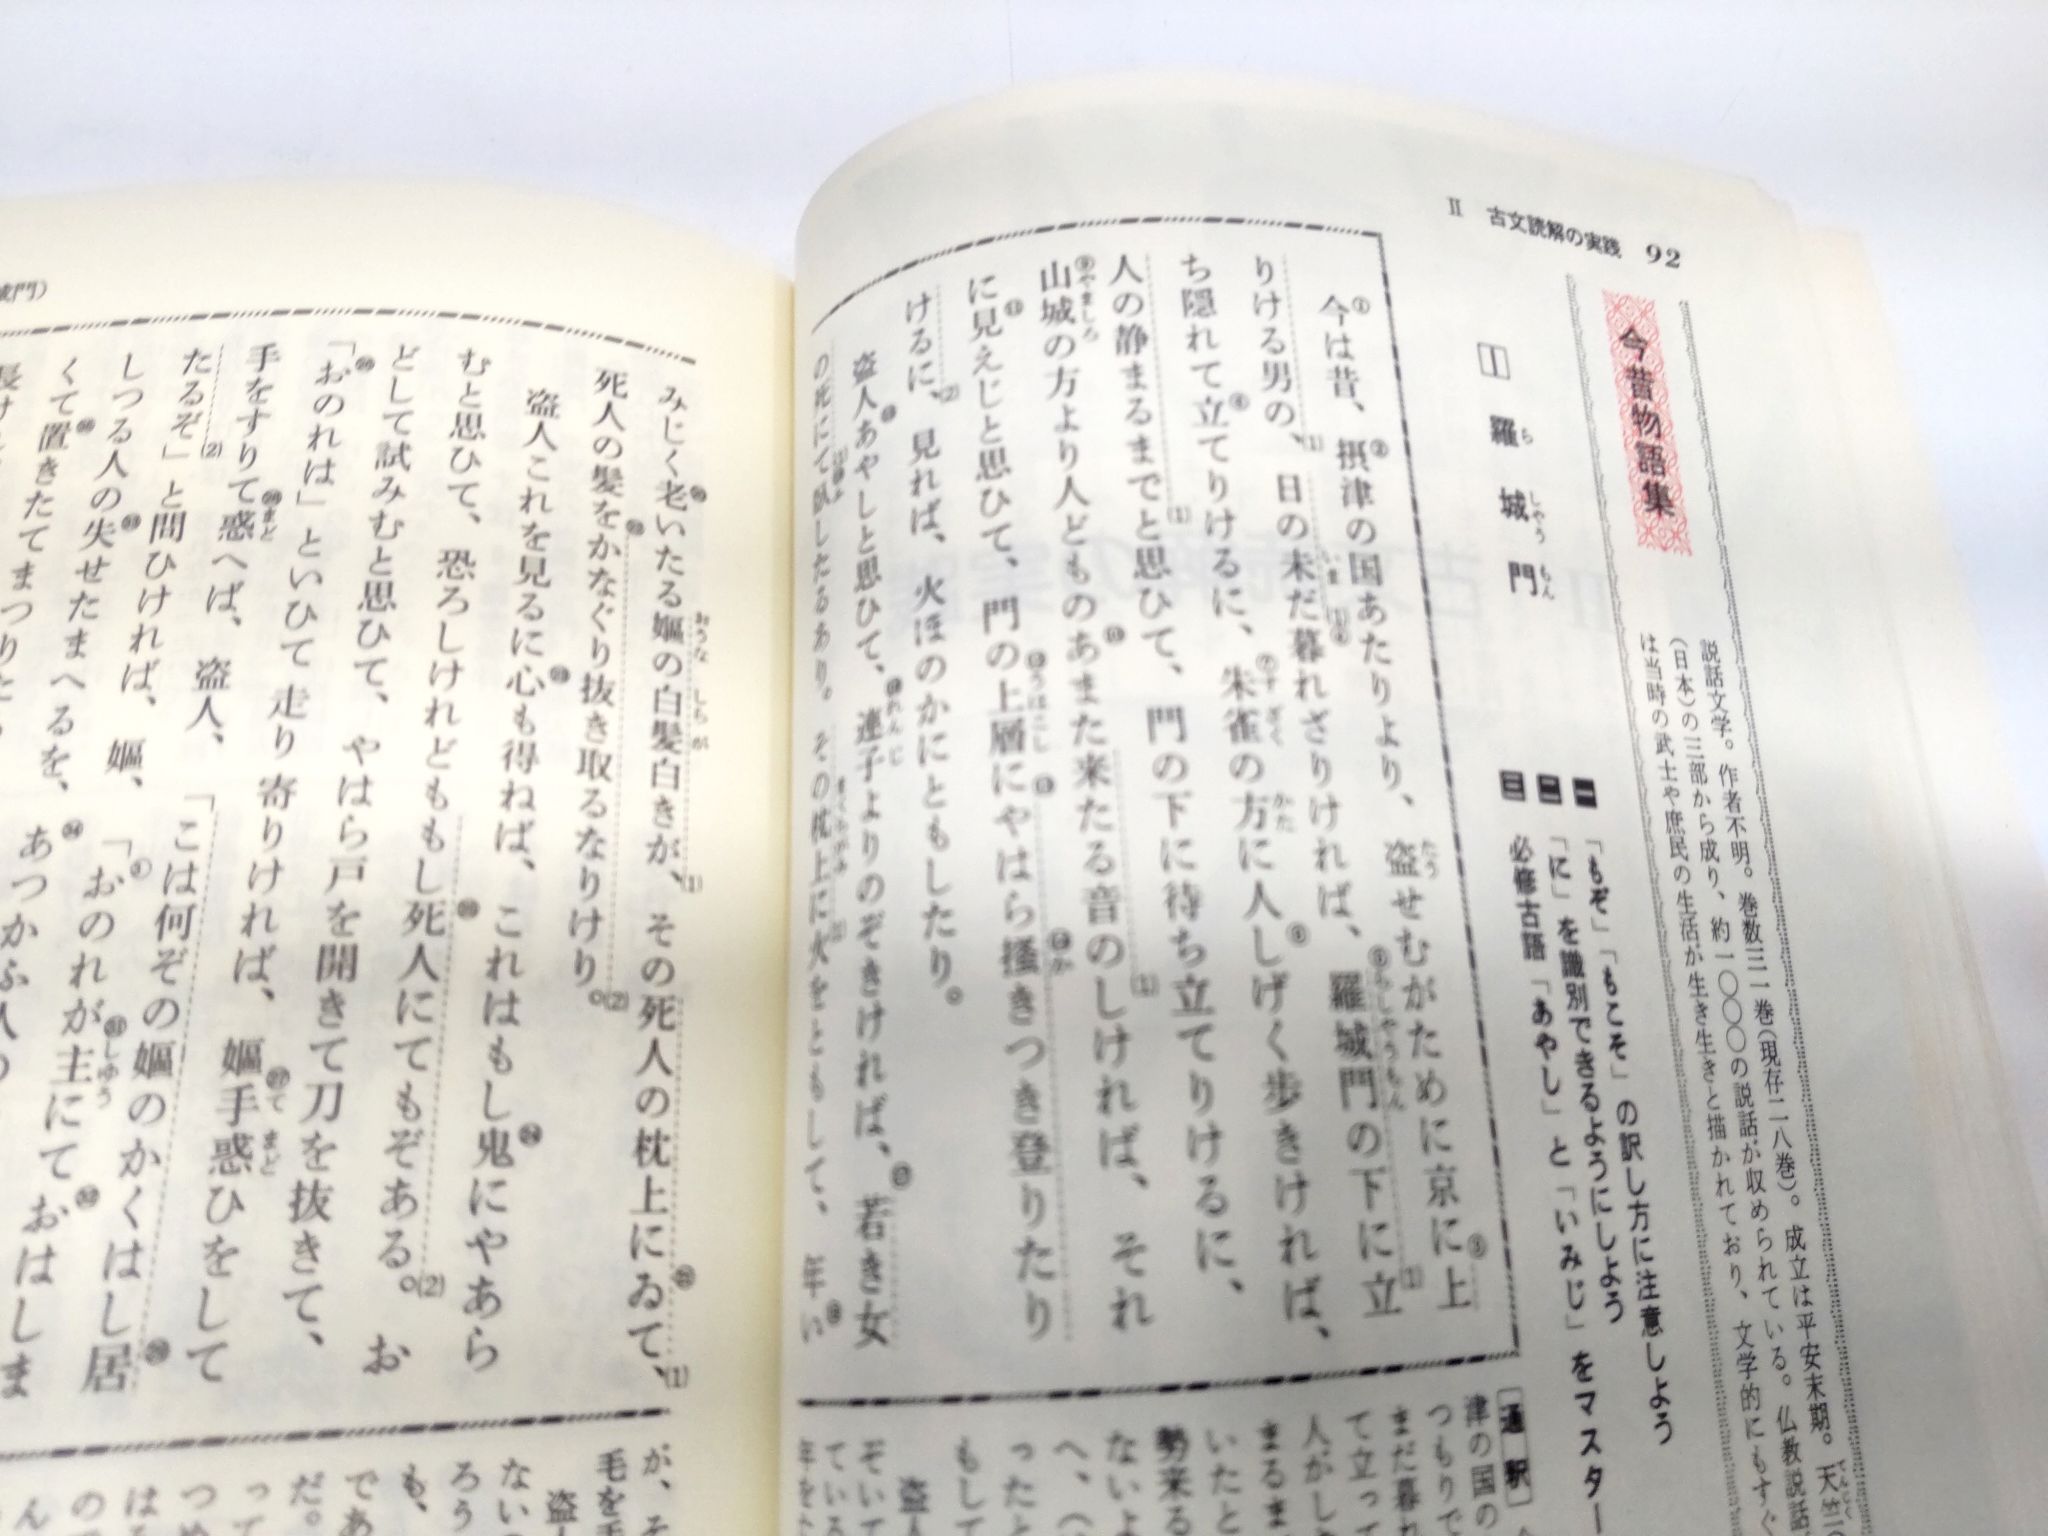 II 古文読解の実践 92
今昔物語集
説話文学。作者不明。巻数三一巻(現存二八巻)。成立は平安末期。天竺
(日本)の三部から成り、約一〇〇〇の説話が収められている。仏教説話
は当時の武士や庶民の生活が生き生きと描かれており、文学的にもすぐ
1 羅城門
一 「もぞ」「もこそ」の訳し方に注意しよう
二 「に」を識別できるようにしよう
三 必修古語「あやし」と「いみじ」をマスター
今は昔、摂津の国あたりより、盗せむがために京に上
りける男の、日の未だ暮れざりければ、羅城門の下に立
ち隠れて立てりけるに、朱雀の方に人しげく歩きければ、
人の静まるまでと思ひて、門の下に待ち立てりけるに、
山城の方より人どものあまた来たる音のしければ、それ
に見えじと思ひて、門の上層にやはら掻きつき登りたり
けるに、見れば、火ほのかにともしたり。
盗人あやしと思ひて、連子よりのぞきければ、若き女
の死にて臥したるあり。その枕上に火をともして、年い
通釈
津の国の
つもりで
まだ暮れ
て立って
人がし
まるま
いたと
勢来る
ないよ
へ、
ったと
もして
盗人
ぞいて
ている
みじく老いたる嫗の白髪白きが、その死人の枕上にゐて、
死人の髪をかなぐり抜き取るなりけり。
盗人これを見るに心も得ねば、これはもし鬼にやあら
むと思ひて、恐ろしけれどももし死人にてもぞある。お
どして試みむと思ひて、やはら戸を開きて刀を抜きて、
「おのれは」といひて走り寄りければ、嫗手惑ひをして
手をすりて惑へば、盗人、「こは何ぞの嫗のかくはし居
たるぞ」と問ひければ、嫗、「おのれが主にておはしま
しつる人の失せたまへるを、あつかふ人の
くて置きたてまつりたる
が、そ
毛を
盗人
ない
ろう
も、
であ
だ。
って
つめ